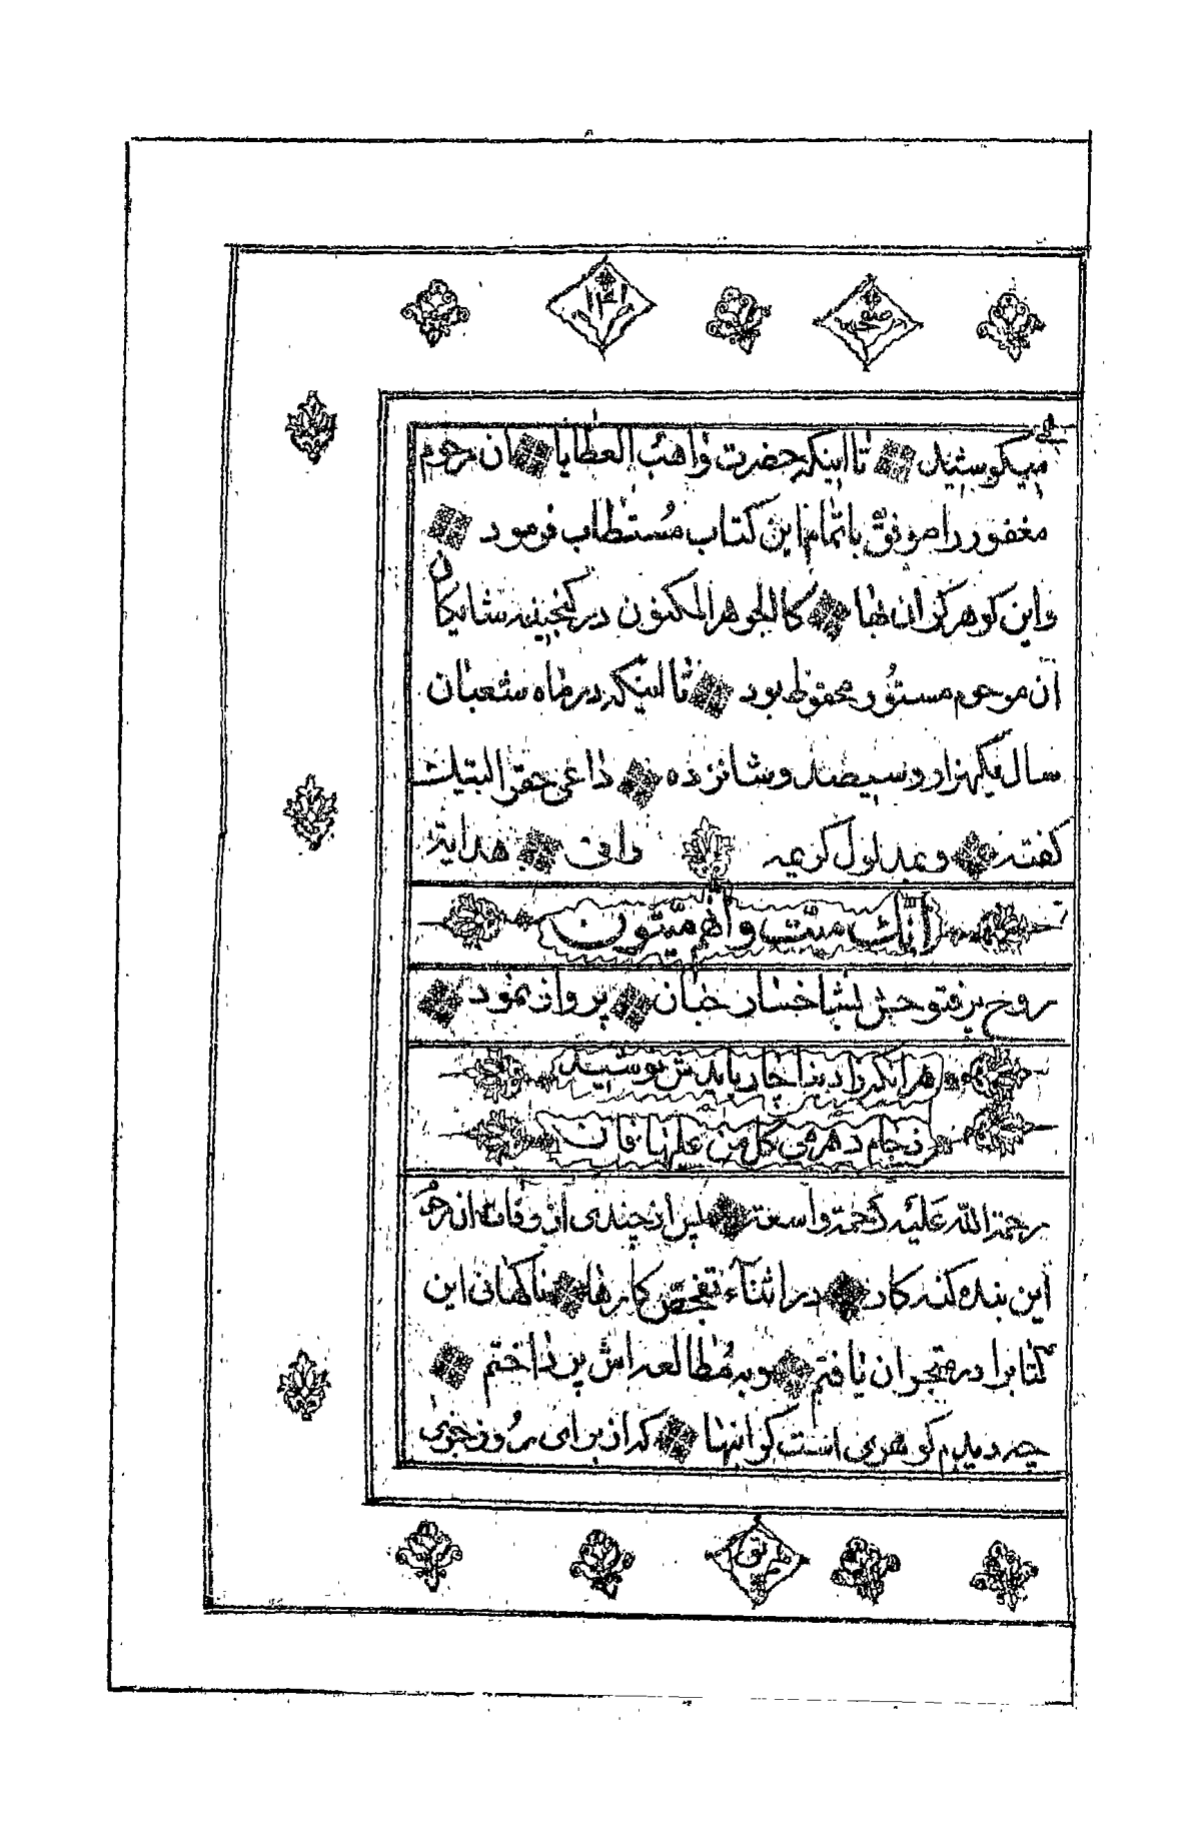 صفحه
۱۴۱
میکوشید تا اینکه حضرت واهب العطایا آن مرحوم
مغفور را موفق باتمام این کتاب مستطاب فرمود
واین کوهر کران بها کالجوهر المکنون در کنجینه شایکان
آن مرحوم مستور و محفوظ بود تا اینکه در ماه شعبان
سال یکهزار و سیصد و شانزده داعی حق را لبیك
کفته و بمدلول کریمه وافی هدایة
انك میّت وانهم میّتون
روح پرفتوحش بشاخسار جنان پرواز نمود
هرانکه زاد بناچار بایدش نوشید
زجام دهر می کل من علیها فان
رحمة الله علیه رحمة واسعة پس از چندی از وفات آن مرحوم
این بنده کنه کار در اثناء تفحص کارها بناکهانی این
کتابرا در متجران یافتم وبه مطالعه اش پرداختم
چه دیدم کوهری است کرانبها که از برای